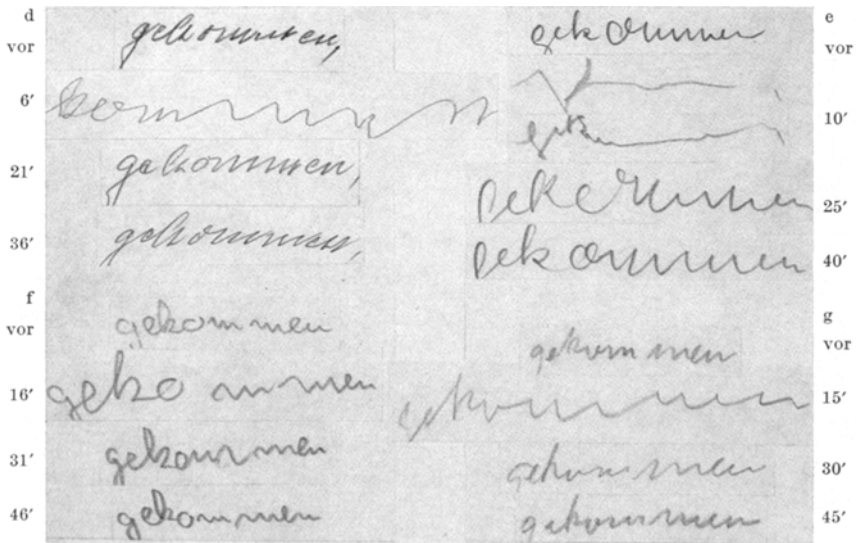 d
vor gekommen,
6' kommen
21' gekommen,
36' gekommen,
f
vor gekommen
16' gekommen
31' gekommen
46' gekommen
e
gekommen vor
gek 10'
gekommen 25'
gekommen 40'
g
gekommen vor
gekommen 15'
gekommen 30'
gekommen 45'